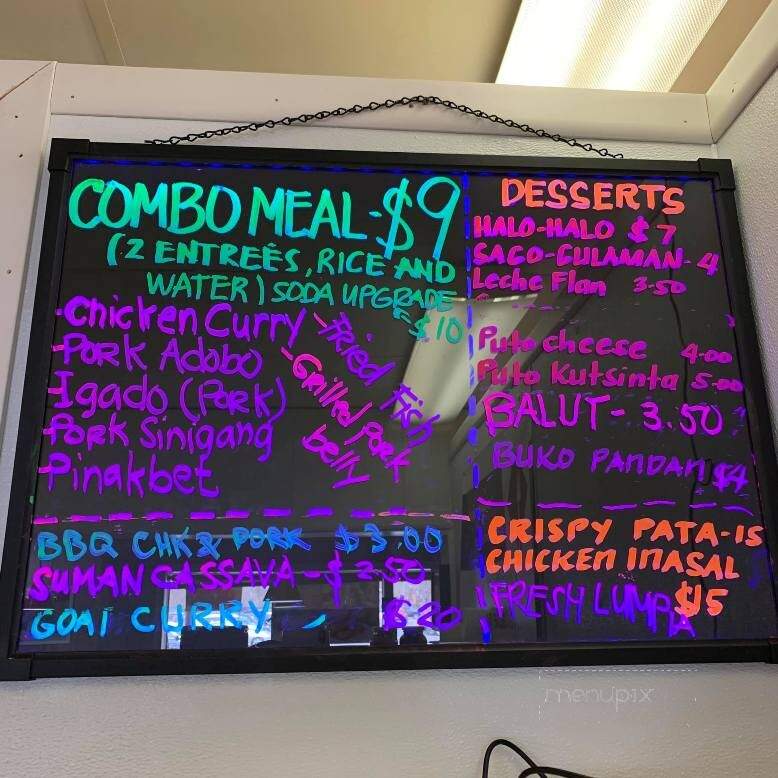 COMBO MEAL-$9
(2 ENTREÉS, RICE AND
WATER) SODA UPGRADE
$10
-Chicken Curry
-Pork Adobo
-Igado (Pork)
-Pork Sinigang
-Pinakbet
-Fried Fish
-Grilled Pork
belly
BBQ CHK & PORK $3.00
SUMAN CASSAVA-$2.50
GOAT CURRY - $20
DESSERTS
HALO-HALO $7
SAGO-GULAMAN-4
Leche Flan 3.50
Puto cheese 4.00
Puto Kutsinta 5.00
BALUT- 3.50
BUKO PANDAN $4
CRISPY PATA-15
CHICKEN INASAL
$15
FRESH LUMPIA
menupix